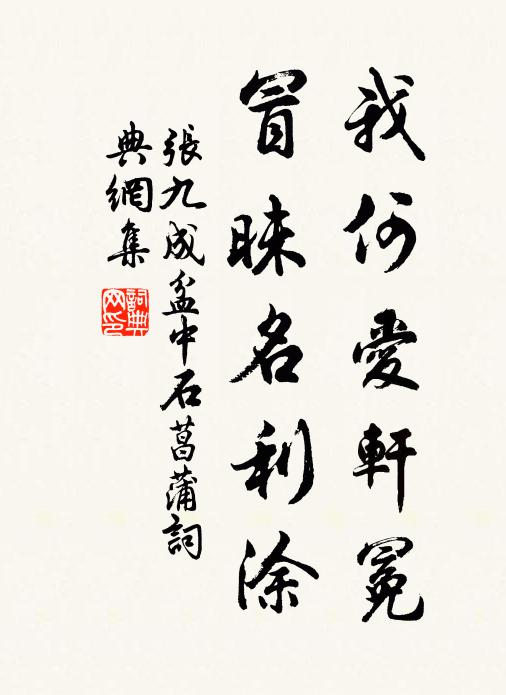 我何愛軒冕
冒昧名利涂
張九成盆中石菖蒲詞
典網集
詞典
网印